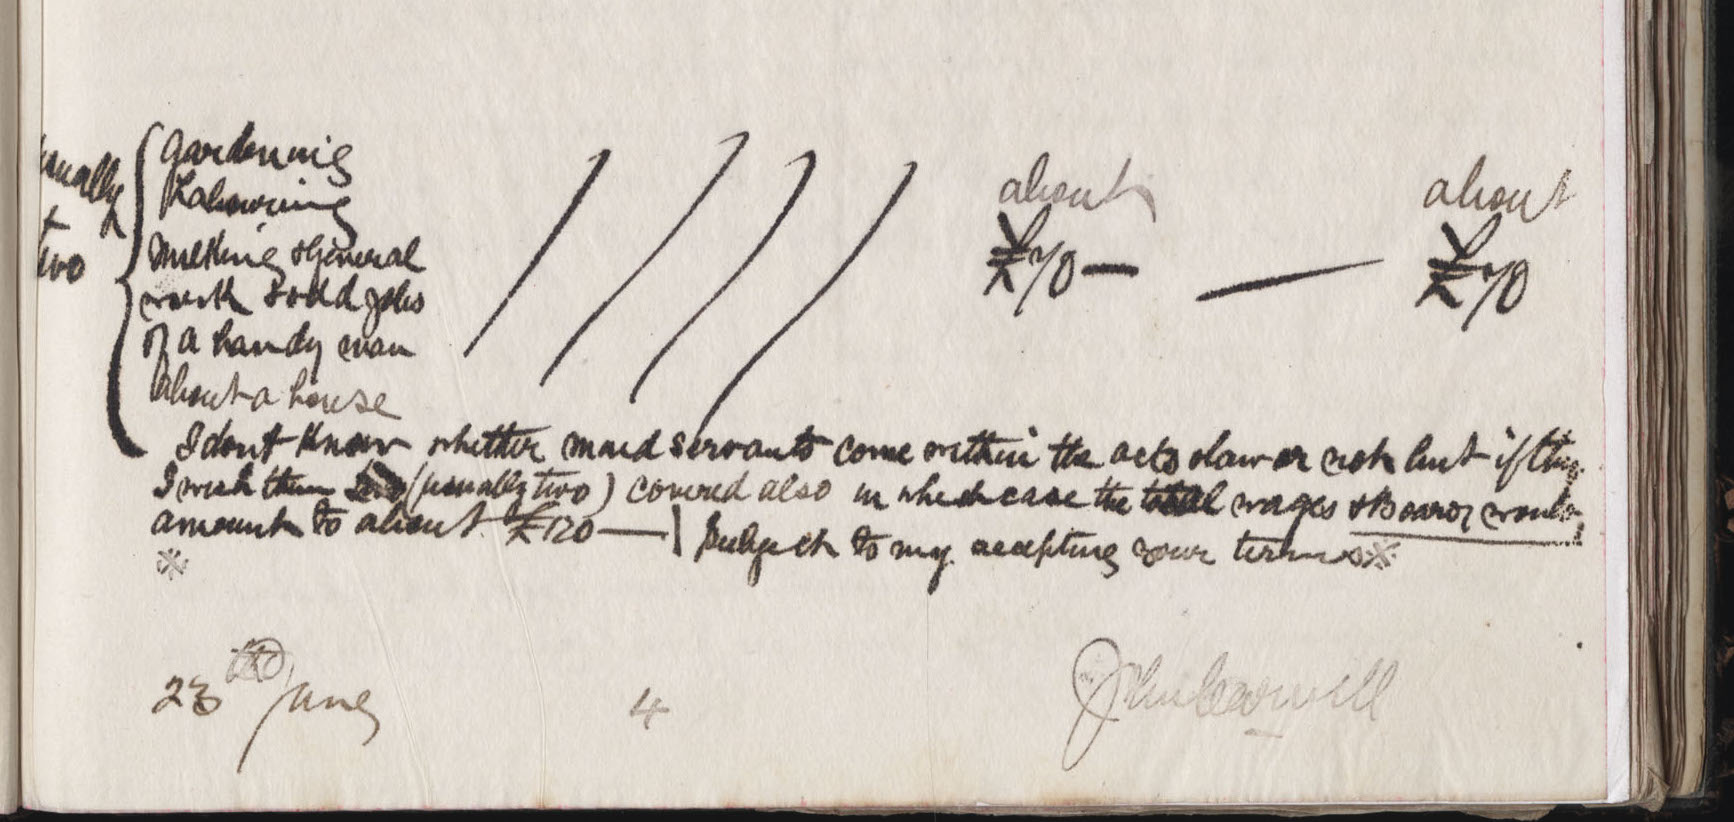 usually
two
Gardening
Labouring
Milking & General
work & odd jobs
of a handy man
about a house
about
£70 —
—
about
£70
I dont know whether maid servants come within the acts & law or not but if they
I wish them (usually two) covered also in which case the total wages & Board would
amount to about £120 — Subject to my accepting your terms ※
※
23 June
4
John